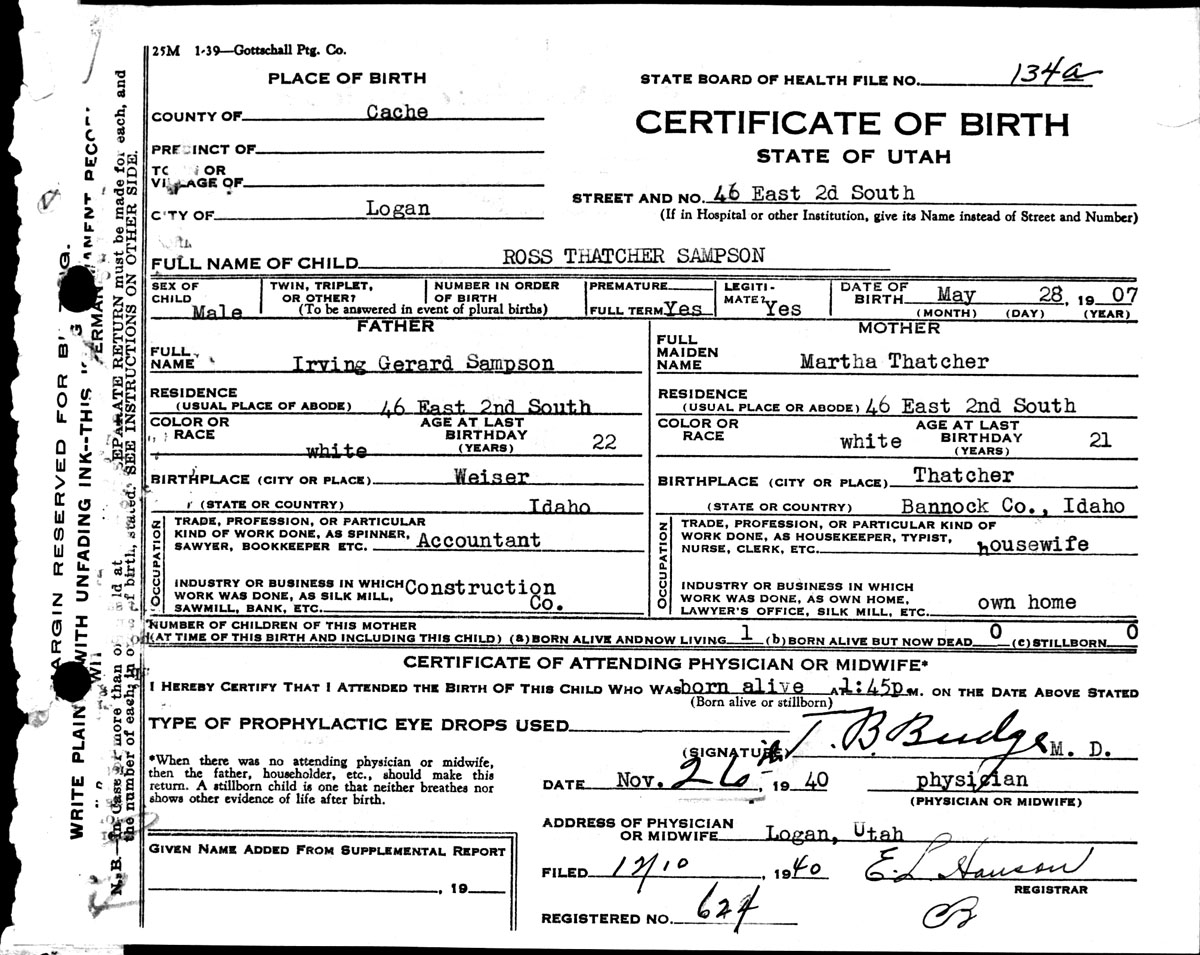 25M 1-39—Gottschall Ptg. Co.
PLACE OF BIRTH
STATE BOARD OF HEALTH FILE NO. 134a
COUNTY OF Cache
CERTIFICATE OF BIRTH
PRECINCT OF
STATE OF UTAH
VILLAGE OF
STREET AND NO. 46 East 2d South
CITY OF Logan
(If in Hospital or other Institution, give its Name instead of Street and Number)
FULL NAME OF CHILD ROSS THATCHER SAMPSON
SEX OF CHILD Male
TWIN, TRIPLET, OR OTHER?
NUMBER IN ORDER OF BIRTH
(To be answered in event of plural births)
PREMATURE
FULL TERM Yes
LEGITI-
MATE? Yes
DATE OF BIRTH May 28, 1907
(MONTH) (DAY) (YEAR)
FATHER
FULL NAME Irving Gerard Sampson
RESIDENCE
(USUAL PLACE OF ABODE) 46 East 2nd South
COLOR OR RACE white
AGE AT LAST BIRTHDAY (YEARS) 22
BIRTHPLACE (CITY OR PLACE) Weiser
(STATE OR COUNTRY) Idaho
OCCUPATION
TRADE, PROFESSION, OR PARTICULAR
KIND OF WORK DONE, AS SPINNER,
SAWYER, BOOKKEEPER ETC. Accountant
INDUSTRY OR BUSINESS IN WHICH
WORK WAS DONE, AS SILK MILL,
SAWMILL, BANK, ETC. Construction Co.
MOTHER
FULL MAIDEN NAME Martha Thatcher
RESIDENCE
(USUAL PLACE OR ABODE) 46 East 2nd South
COLOR OR RACE white
AGE AT LAST BIRTHDAY (YEARS) 21
BIRTHPLACE (CITY OR PLACE) Thatcher
(STATE OR COUNTRY) Bannock Co., Idaho
OCCUPATION
TRADE, PROFESSION, OR PARTICULAR KIND OF
WORK DONE, AS HOUSEKEEPER, TYPIST,
NURSE, CLERK, ETC. housewife
INDUSTRY OR BUSINESS IN WHICH
WORK WAS DONE, AS OWN HOME,
LAWYER'S OFFICE, SILK MILL, ETC. own home
NUMBER OF CHILDREN OF THIS MOTHER
(AT TIME OF THIS BIRTH AND INCLUDING THIS CHILD) (a) BORN ALIVE AND NOW LIVING 1 (b) BORN ALIVE BUT NOW DEAD 0 (c) STILLBORN 0
CERTIFICATE OF ATTENDING PHYSICIAN OR MIDWIFE*
I HEREBY CERTIFY THAT I ATTENDED THE BIRTH OF THIS CHILD WHO WAS born alive AT 1:45p M. ON THE DATE ABOVE STATED
(Born alive or stillborn)
TYPE OF PROPHYLACTIC EYE DROPS USED
(SIGNATURE) T. B. Budge M. D.
*When there was no attending physician or midwife,
then the father, householder, etc., should make this
return. A stillborn child is one that neither breathes nor
shows other evidence of life after birth.
DATE Nov. 26th, 1940 physician
(PHYSICIAN OR MIDWIFE)
ADDRESS OF PHYSICIAN
OR MIDWIFE Logan, Utah
GIVEN NAME ADDED FROM SUPPLEMENTAL REPORT
, 19
FILED 12/10, 1940 E. L. Hanson
REGISTRAR
REGISTERED NO. 624
MARGIN RESERVED FOR
WRITE PLAIN WITH UNFADING INK--THIS
SEPARATE RETURN must be made for each, and
the number of each, in of birth, stated. SEE INSTRUCTIONS ON OTHER SIDE.